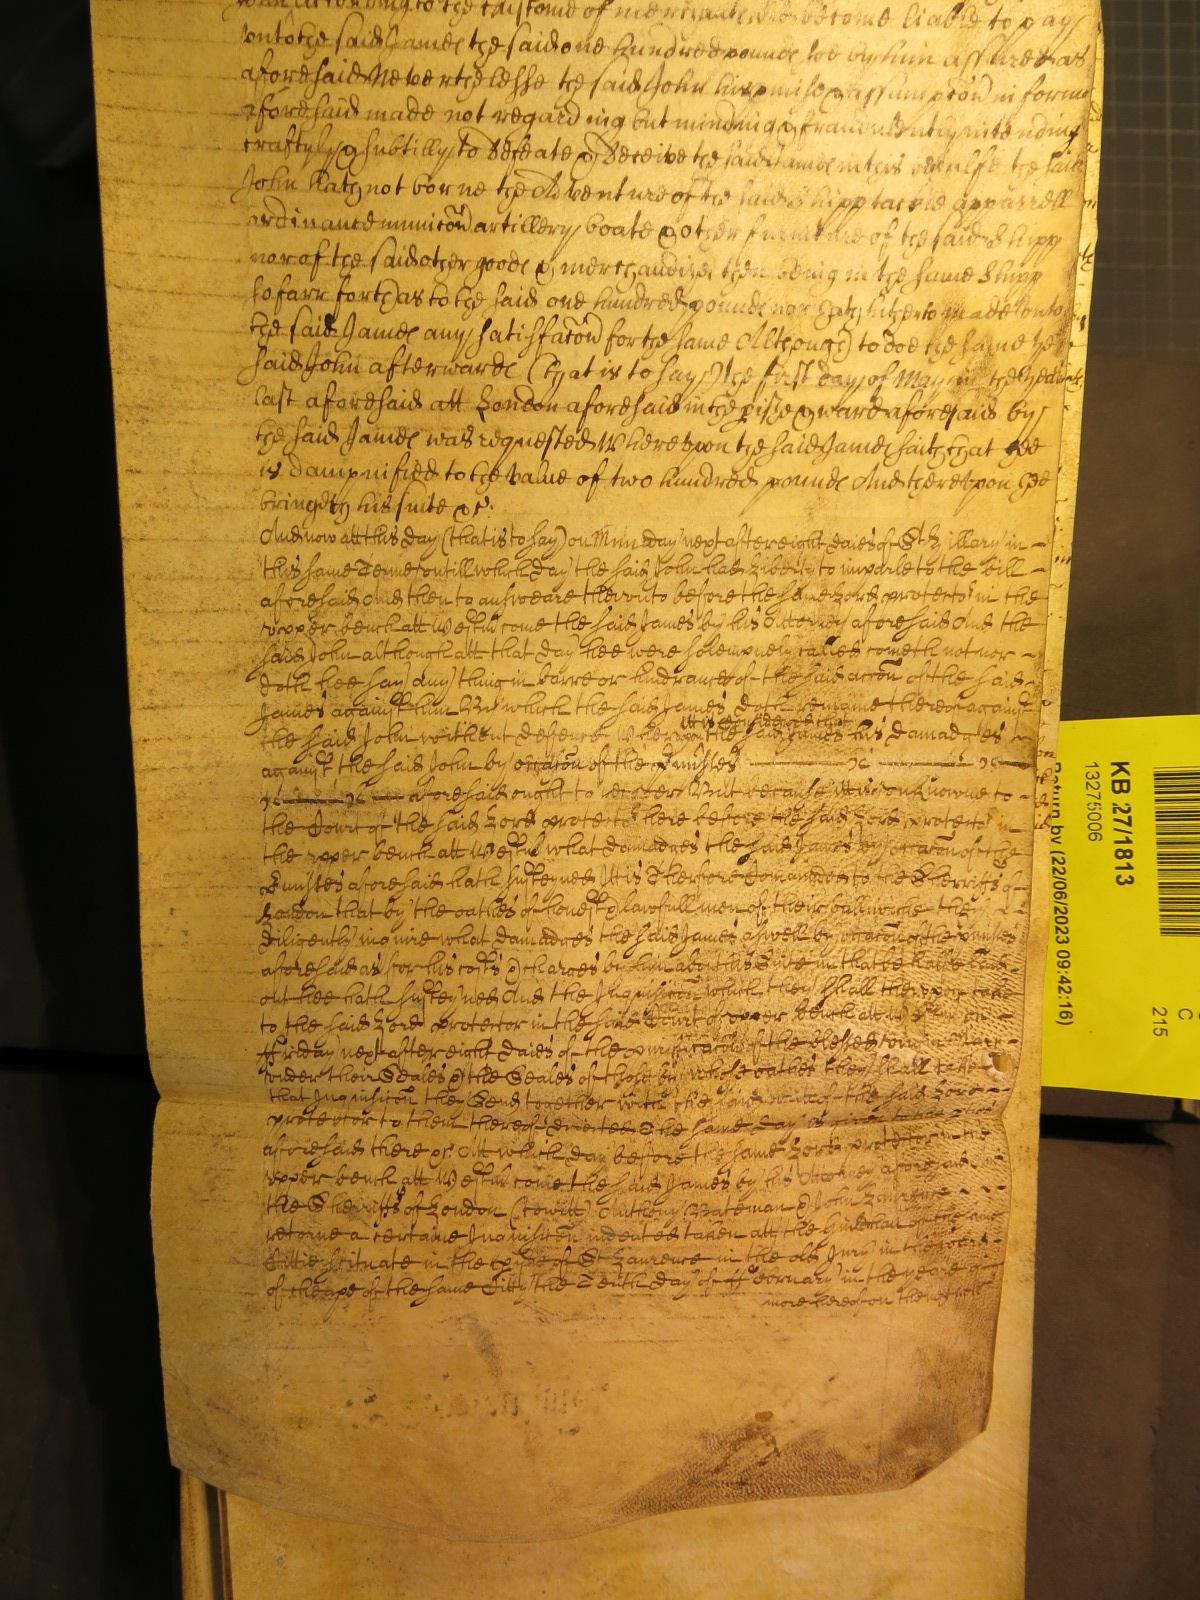 according to the custome of merchants become liable to pay
unto the said James the said one hundred pounds soe by him assured as
aforesaid Neverthelesse the said John his p'mise & assumpcōn in forme
aforesaid made not regarding but minding & fraudulently intending
craftyly & subtilly to defeate & deceive the said James in this behalfe the said
John hath not borne the Adventure of the said Shipp tackle apparrell
ordinance municōn artillery boate & other furniture of the said Shipp
nor of the said other goods & merchandizes then being in the same Shipp
so farr forth as to the said one hundred pounds nor hath hitherto made unto
the said James any satisfacōn for the same Although to doe the same the
said John afterwards (that is to say) the first day of May in the yeare
last aforesaid att London aforesaid in the p'ishe & ward aforesaid by
the said James was requested Whereupon the said James saith that hee
is dampnified to the value of two hundred pounds And thereupon hee
bringeth his suite &c.
And now att this day (that is to say) on Munday next after eight daies of St Hillary in
this same Terme untill which day the said John had Liberty to imparle to the bill
aforesaid And then to answeare thereunto before the same Lord protector in the
upper bench att Westm' come the said James by his Attorney aforesaid And the
said John although att that day hee were solempnely called cometh not nor
doth hee say any thing in barre or hindrance of the said accōn of the said
James against him By which the said James doth remaine thereof against
the said John without defence Whereupon itt is considered that the said James his damadges
against the said John by occacōn of the p'misses
aforesaid ought to recover But because itt is unknowne to
the Court of the said Lord protector here before the said Lord protector in
the upper bench att Westm' what damadges the said James by occacōn of the
p'misses aforesaid hath susteyned Itt is Therefore Comanded to the Sherriffs of
London that by the oathes of honest & lawfull men of their bailiwicke they
diligently inquire what damadges the said James aswell by occacōn of the p'misses
aforesaid as for his costs & charges by him about his Suite in that behalfe laid
out hee hath susteyned And the Inquisicōn which they shall thereupon take
to the said Lord protector in the said Court of upper bench att Westm' on
Fryday next after eight daies of the purificacōn of the blessed virgin Mary
under their Seales & the Seales of those by whose oathes they shall take
that Inquisicōn they Send together with the said writt of the said Lord
protector to them thereof directed The same day is given to the
aforesaid there &c. Att which day before the same Lord protector in the
upper bench att Westm' come the said James by his Attorney aforesaid And
the Sherriffs of London (to witt) Anthony Bateman & John Lawrence
retorne a certaine Inquisicōn indented taken att the Guildhall of the same
Cittie scituate in the p'ishe of St Laurence in the old Jury in the ward
of cheape of the same Citty the Tenth day of February in the yeare of
more hereof on the other side
KB 27/1813
13275006
Return by (22/06/2023 09:42:16)
C
215